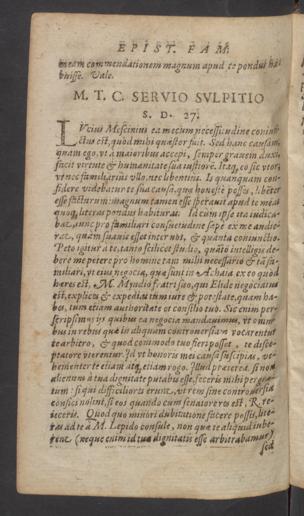 EPIST. FAM.
meam commendationem magnum apud te pondus ha
buisse. Vale.
M. T. C. SERVIO SVLPITIO
S. D. 27.
LVcius Mescinius ea mecum necessitudine coniun
ctus est, quod mihi quæstor fuit. Sed hanc causam,
quam ego, vt a maioribus accepi, semper grauem duxi,
fecit virtute & humanitate sua iustiorē. Itaq, eo sic vtor,
vt nec familiarius vllo, nec libentius. Is quanquam con
fidere videbatur te sua causa, quæ honeste posses, libēter
esse facturum: magnum tamen esse sperauit apud te meas
quoq, literas pondus habituras. Id cum ipse ita iudica-
bat, tunc pro familiari consuetudine sæpe ex me audie-
rat, quam suauis esset inter nos, & quanta coniunctio.
Peto igitur a te, tanto scilicet studio, quāto intelligis de-
bere me petere pro homine tam mihi necessario & tā fa-
miliari, vt eius negocia, quæ sunt in Achaia ex eo quod
hæres est, M. Myndio fratri suo, qui Elide negociatus
est, explices & expedias tum iure & potestate, quam ha-
bes, tum etiam auctoritate et consilio tuo. Sic enim per-
scripsimus ijs quibus ea negocia mandauimus, vt omni
bus in rebus quæ in aliquam controuersiam vocarentur
te arbitro, & quod commodo tuo fieri posset, te discep-
ptatore vterentur. Id vt honoris mei causa suscipias, ve-
hementer te etiam atq, etiam rogo. Illud præterea, si non
alienum à tua dignitate putabis esse, feceris mihi pergra-
tum: si qui difficiliores erunt, vt rem sine controuersia
confici nolint, si eos quando cum senatore res est, R. re-
ieceris. Quod quo minori dubitatione facere possis, lite-
ras ad te à M. Lepido consule, non quæ te aliquid iube-
rent (neque enim id tuæ dignitatis esse arbitrabamur)
sed